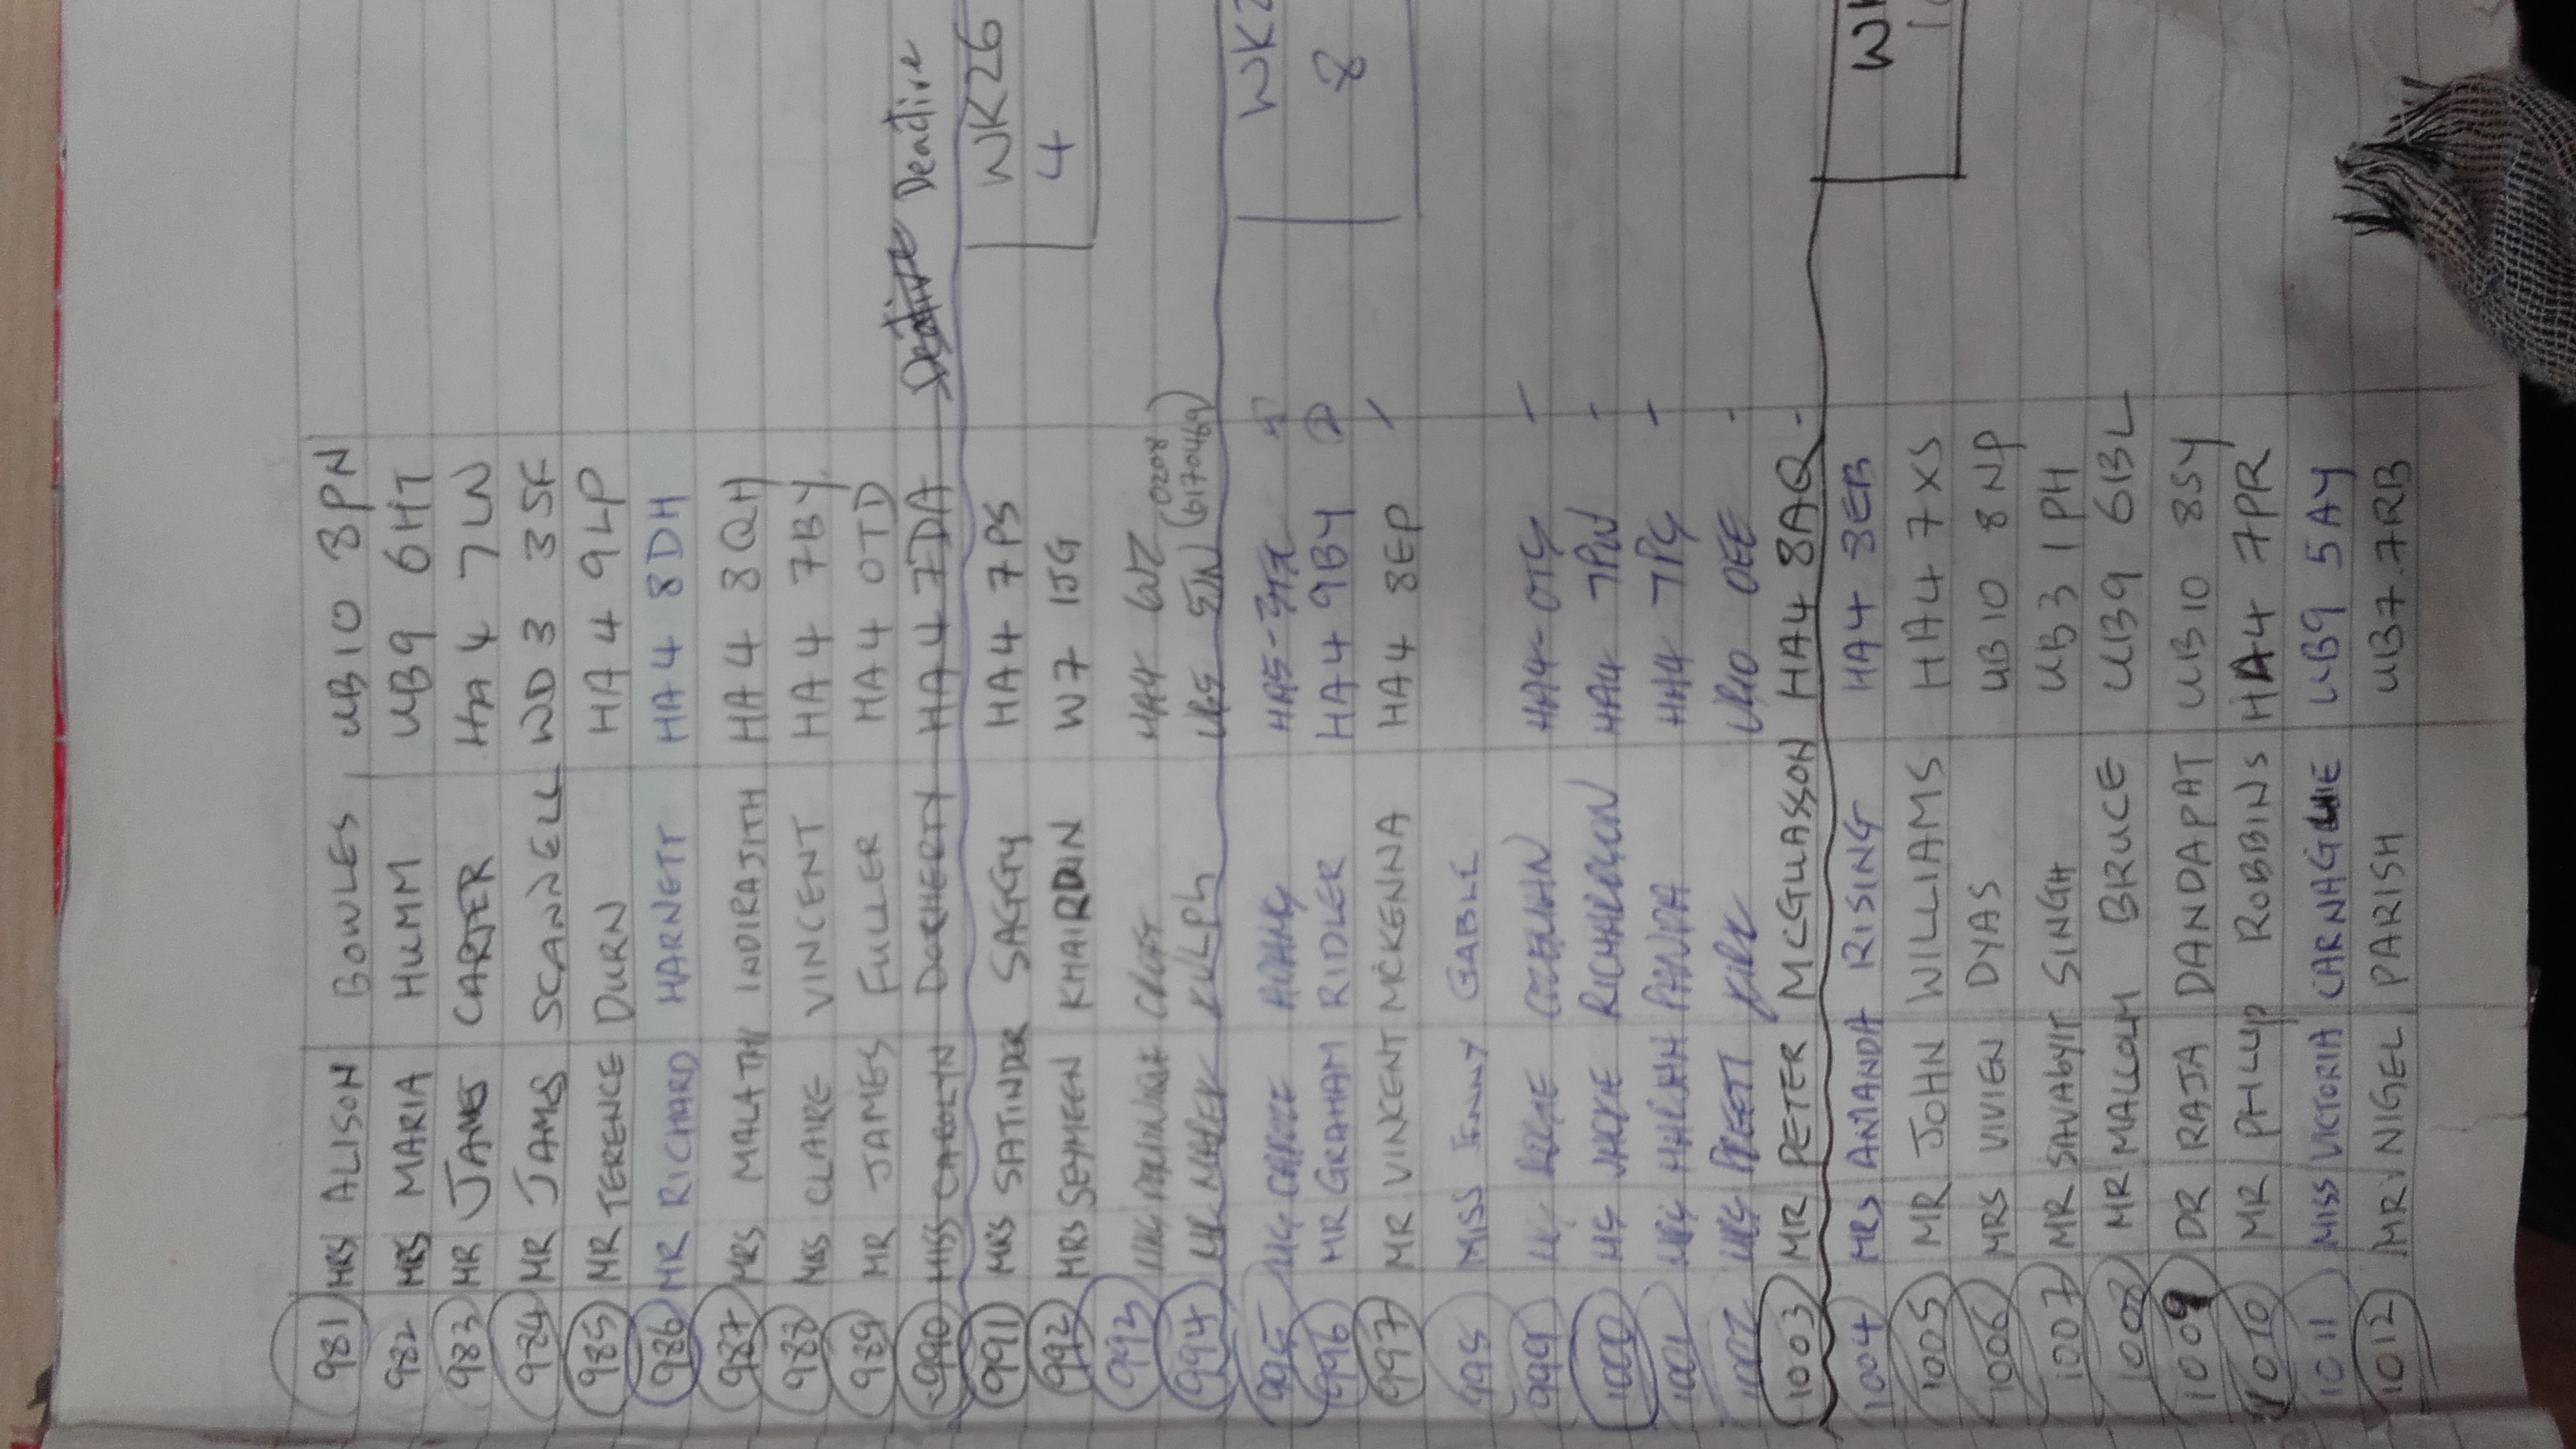 981 MRS ALISON BOWLES UB10 8PN
982 MRS MARIA HUMM UB9 6HT
983 MR JAMES CARTER HA4 7LN
984 MR JAMES SCANNELL WD3 3SF
985 MR TERENCE DURN HA4 9LP
986 MR RICHARD HARNETT HA4 8DH
987 MRS MALATHI INDIRAJITH HA4 8QH
988 MRS CLAIRE VINCENT HA4 7BY
989 MR JAMES FULLER HA4 0TD
990 MISS CAROLYN DOCHERTY HA4 7DA Deative Deactive
991 MRS SATINDER SAGGY HA4 7PS WK26
992 MRS SEYMEEN KHAIRDIN W7 1JG 4
993 CROFT HA4
994 MR MAREK UB5 (0208 6170469)
995 MS CAROLE ADAMS HA5- WK2
996 MR GRAHAM RIDLER HA4 9BY 8
997 MR VINCENT MCKENNA HA4 8EP
998 MISS JENNY GABLE
999 MS COLEMAN HA4- 0TS
1000 MS JACKIE RICHARDSON HA4 7PW -
1001 MRS PANDA HA4 7PS -
1002 MRS PREETI KIRK UB10 0EE -
1003 MR PETER MCGUASSON HA4 8AQ -
1004 MRS AMANDA RISING HA4 8EB
1005 MR JOHN WILLIAMS HA4 7XS
1006 MRS VIVIEN DYAS UB10 8NP
1007 MR SINGH UB3 1PH
1008 MR MALCOLM BRUCE UB9 6BL
1009 DR RAJA DANDAPAT UB10 8SY
1010 MR PHILLIP ROBBINS HA4 7PR
1011 MISS VICTORIA UB9 5AY
1012 MR NIGEL PARISH UB7 7RB